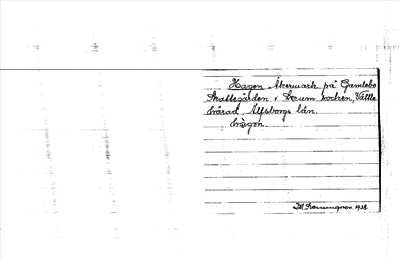 Hagen Åkermark på Gamlebo
Skattegården i Lerum socken, Vättle
härad, Älfsborgs län.
hàgen
1938